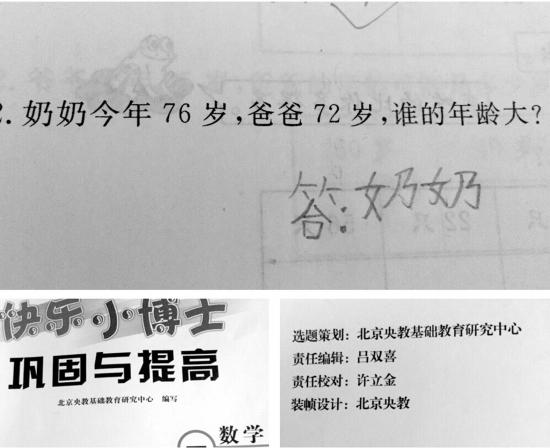 2. 奶奶今年 76 岁,爸爸 72 岁,谁的年龄大?
答:奶奶
快乐小博士
巩固与提高
北京央教基础教育研究中心 编写
数学
选题策划: 北京央教基础教育研究中心
责任编辑: 吕双喜
责任校对: 许立金
装帧设计: 北京央教